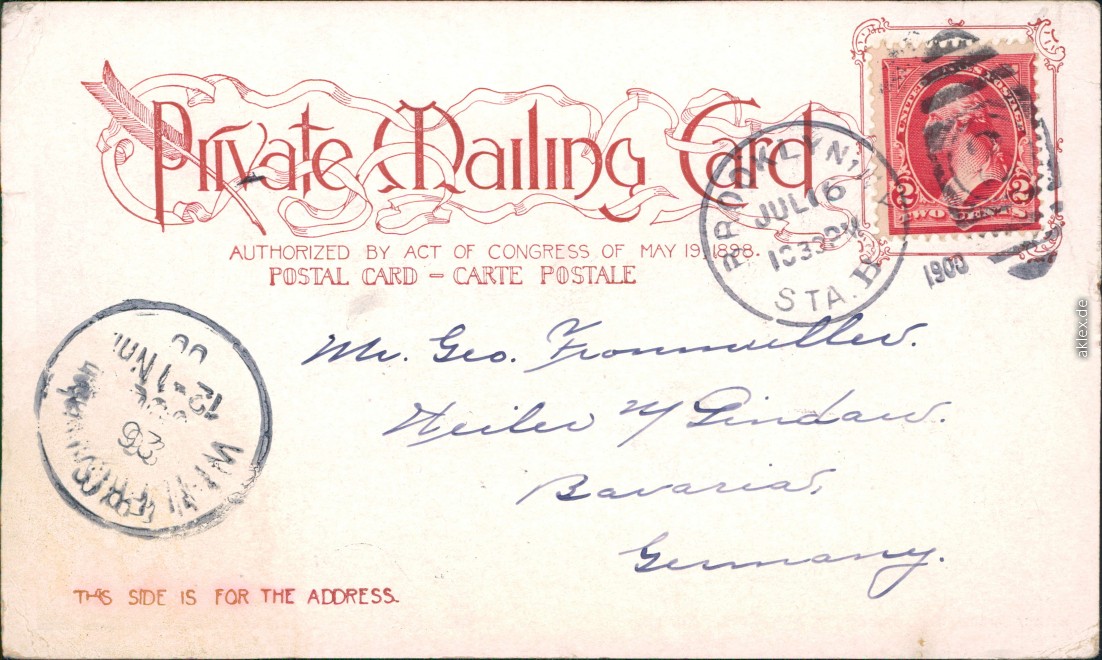 Private Mailing Card
AUTHORIZED BY ACT OF CONGRESS OF MAY 19, 1898.
POSTAL CARD – CARTE POSTALE
UNITED STATES POSTAGE
2 2
TWO CENTS
BROOKLYN, N.Y.
JUL 16
1030PM
STA. H
1900
Mr. Geo. Fronmüller.
Weiler Gindau.
Bavaria,
Germany.
26
12-1 NM.
00
THIS SIDE IS FOR THE ADDRESS.
aklex.de